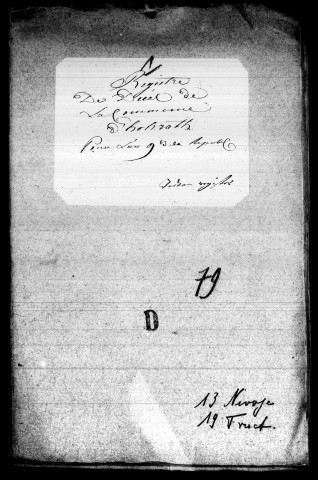 Registre
De Décé de
La Commune
D'holzrath
Pour L'an 9 de la Republ
79
D
13 Nivose
19 Fruct.